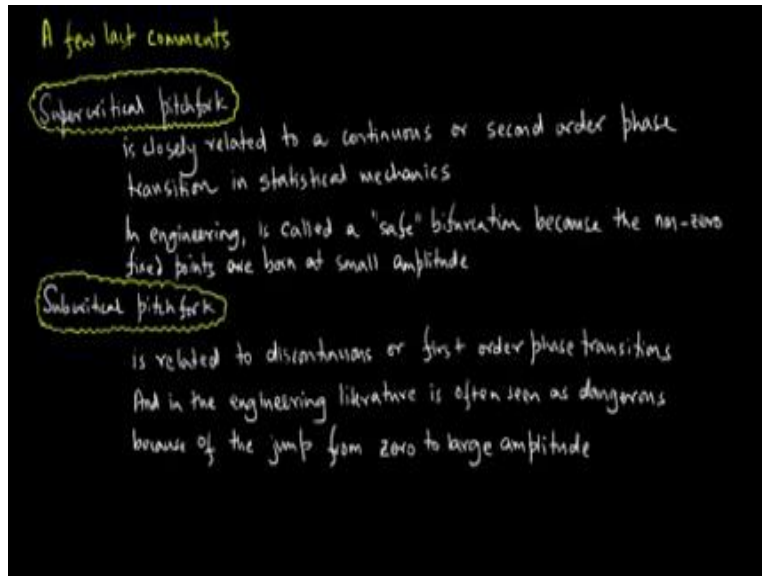 A few last comments
Supercritical pitchfork
is closely related to a continuous or second order phase
transition in statistical mechanics
In engineering, is called a "safe" bifurcation because the non-zero
fixed points are born at small amplitude
Subcritical pitchfork
is related to discontinuous or first order phase transitions
And in the engineering literature is often seen as dangerous
because of the jump from zero to large amplitude